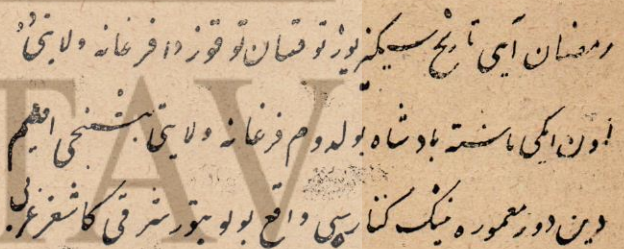 رمضان آیی تاریخ سیکیز یوز توقسان توقوزدا فرغانه ولایتی‌دا
اون ایکی یاشته پادشاه بولدوم فرغانه ولایتی بیشینجی اقلیم
دین دور معموره نینک کناره سی دا واقع بولوبتور شرقی کاشغر غربی
TAV